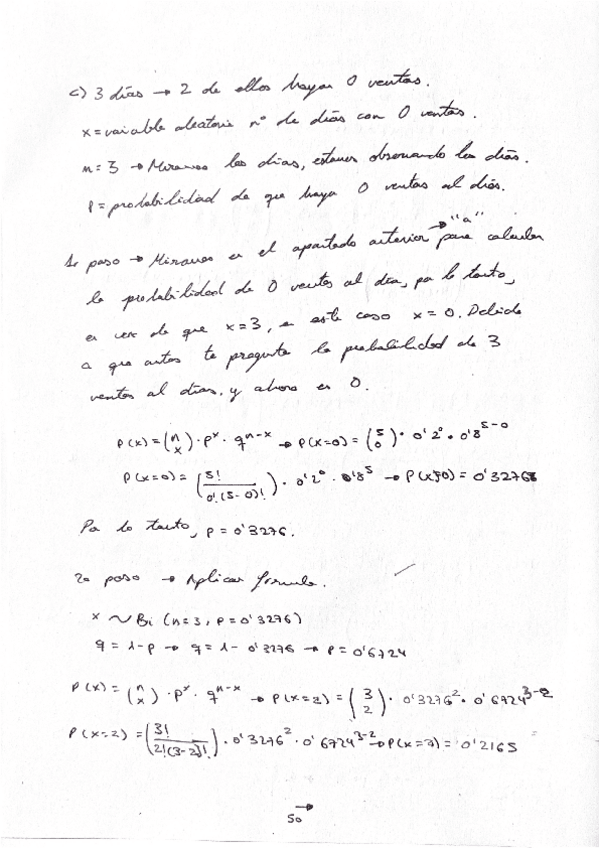 c) 3 días → 2 de ellos haya 0 ventas.
x = variable aleatoria nº de días con 0 ventas.
n = 3 → Miramos los días, estamos observando los días.
P = probabilidad de que haya 0 ventas al día.
→ "a"
1er paso → Miramos en el apartado anterior para calcular
la probabilidad de 0 ventas al día, por lo tanto,
en vez de que x = 3, en este caso x = 0. Debido
a que antes te pregunta la probabilidad de 3
ventas al días, y ahora es 0.
P(x) = (n x) · p^x · q^(n-x) → P(x=0) = (5 0) · 0'2^0 · 0'8^(5-0)
P(x=0) = (5! / 0!(5-0)!) · 0'2^0 · 0'8^5 → P(x=0) = 0'32768
Por lo tanto, p = 0'3276.
2o paso → Aplicar formula.
x ~ Bi (n=3, p=0'3276)
q = 1-p → q = 1 - 0'3276 → p = 0'6724
P(x) = (n x) · p^x · q^(n-x) → P(x=2) = (3 2) · 0'3276^2 · 0'6724^(3-2)
P(x=2) = (3! / 2!(3-2)!) · 0'3276^2 · 0'6724^(3-2) → P(x=2) = 0'2165
50 →